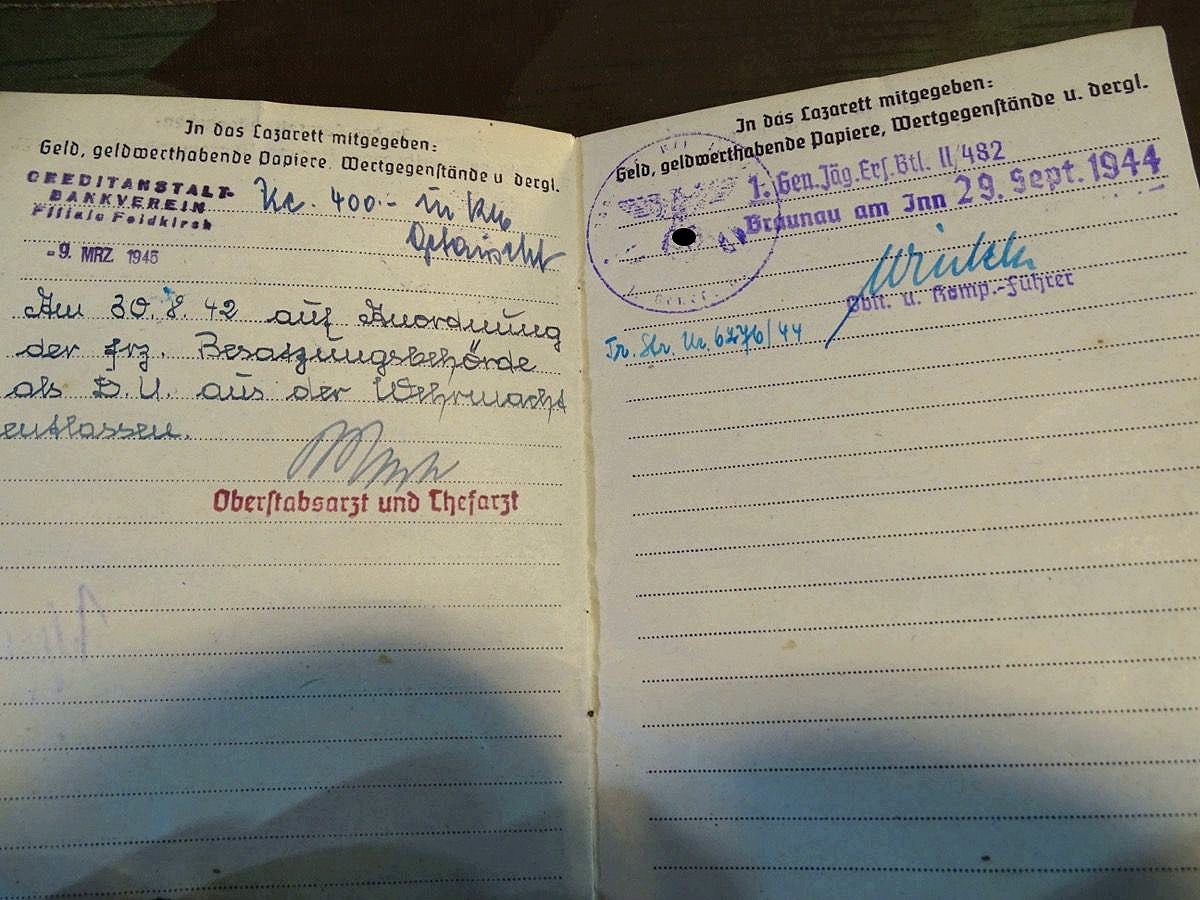 In das Lazarett mitgegeben:
Geld, geldwerthabende Papiere. Wertgegenstände u dergl.
CREDITANSTALT-
BANKVEREIN
Filiale Feldkirch
- 9. MRZ 1945
400.- in
Am 30.8.42 auf Anordnung
der frz. Besatzungsbehörde
als D.U. aus der Wehrmacht
entlassen.
Oberstabsarzt und Chefarzt
In das Lazarett mitgegeben:
Geld, geldwerthabende Papiere, Wertgegenstände u. dergl.
1. Gen. Jäg. Ers. Btl. II/482
Braunau am Inn 29. Sept. 1944
Oblt. u. Komp.-Führer
Nr. 6276/44